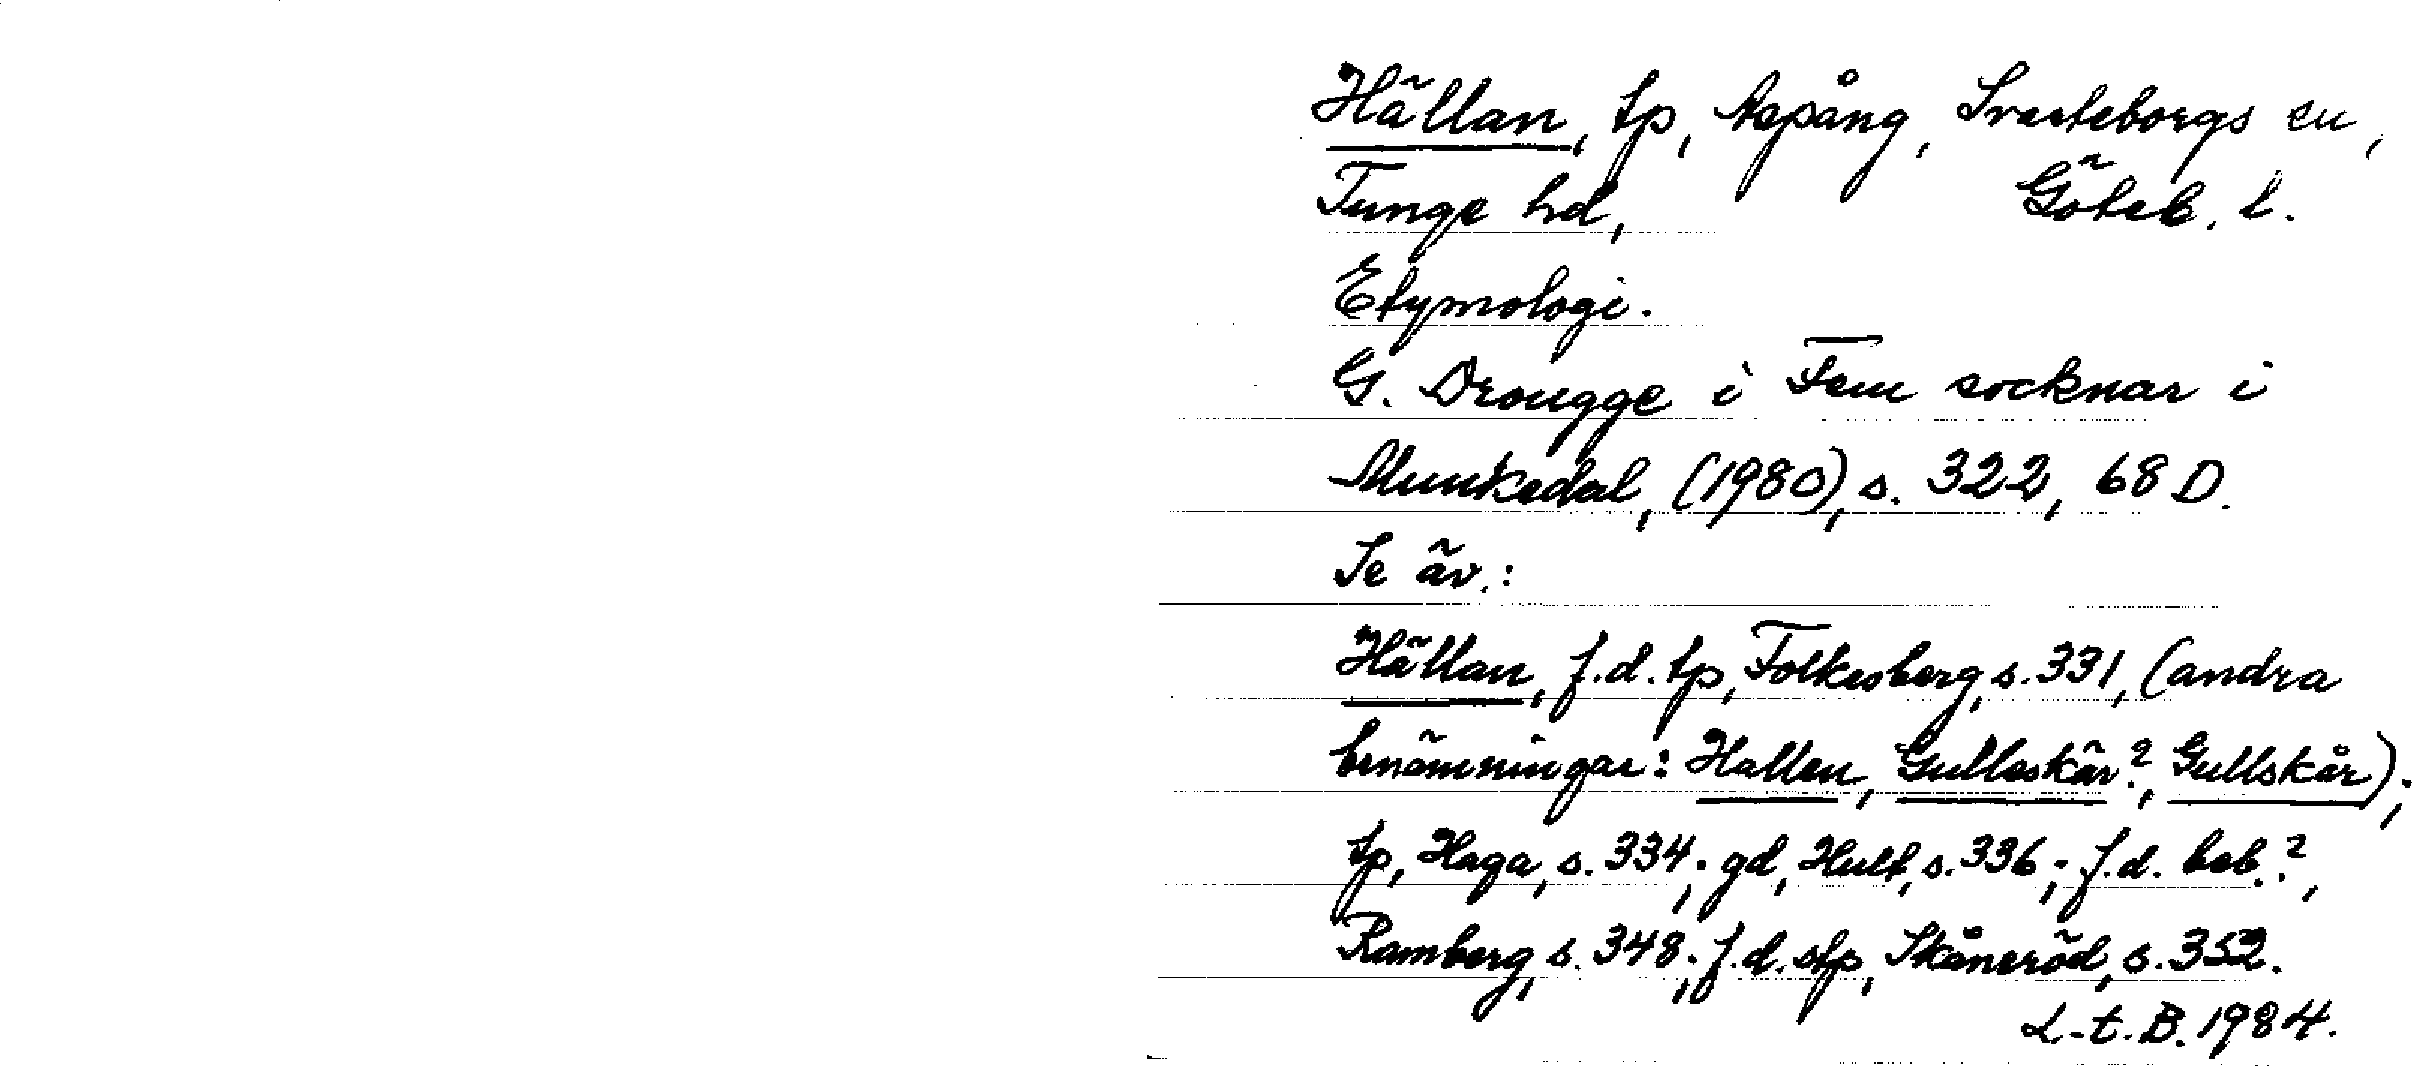 Hällan, tp, Aspång, Svarteborgs sn,
Tunge hd, Göteb. l.
Etymologi.
G. Drougge i Fem socknar i
Munkedal, (1980), s. 322, 68 D.
Se äv.:
Hällan, f.d. tp, Folkesberg, s. 331, (andra
benämningar: Hallen, Gulleskär?, Gullskår);
tp, Haga, s. 334; gd, Hult, s. 336; f.d. beb.?,
Ramberg, s. 348; f.d. stp, Skåneröd, s. 352.
L-t. B. 1984.